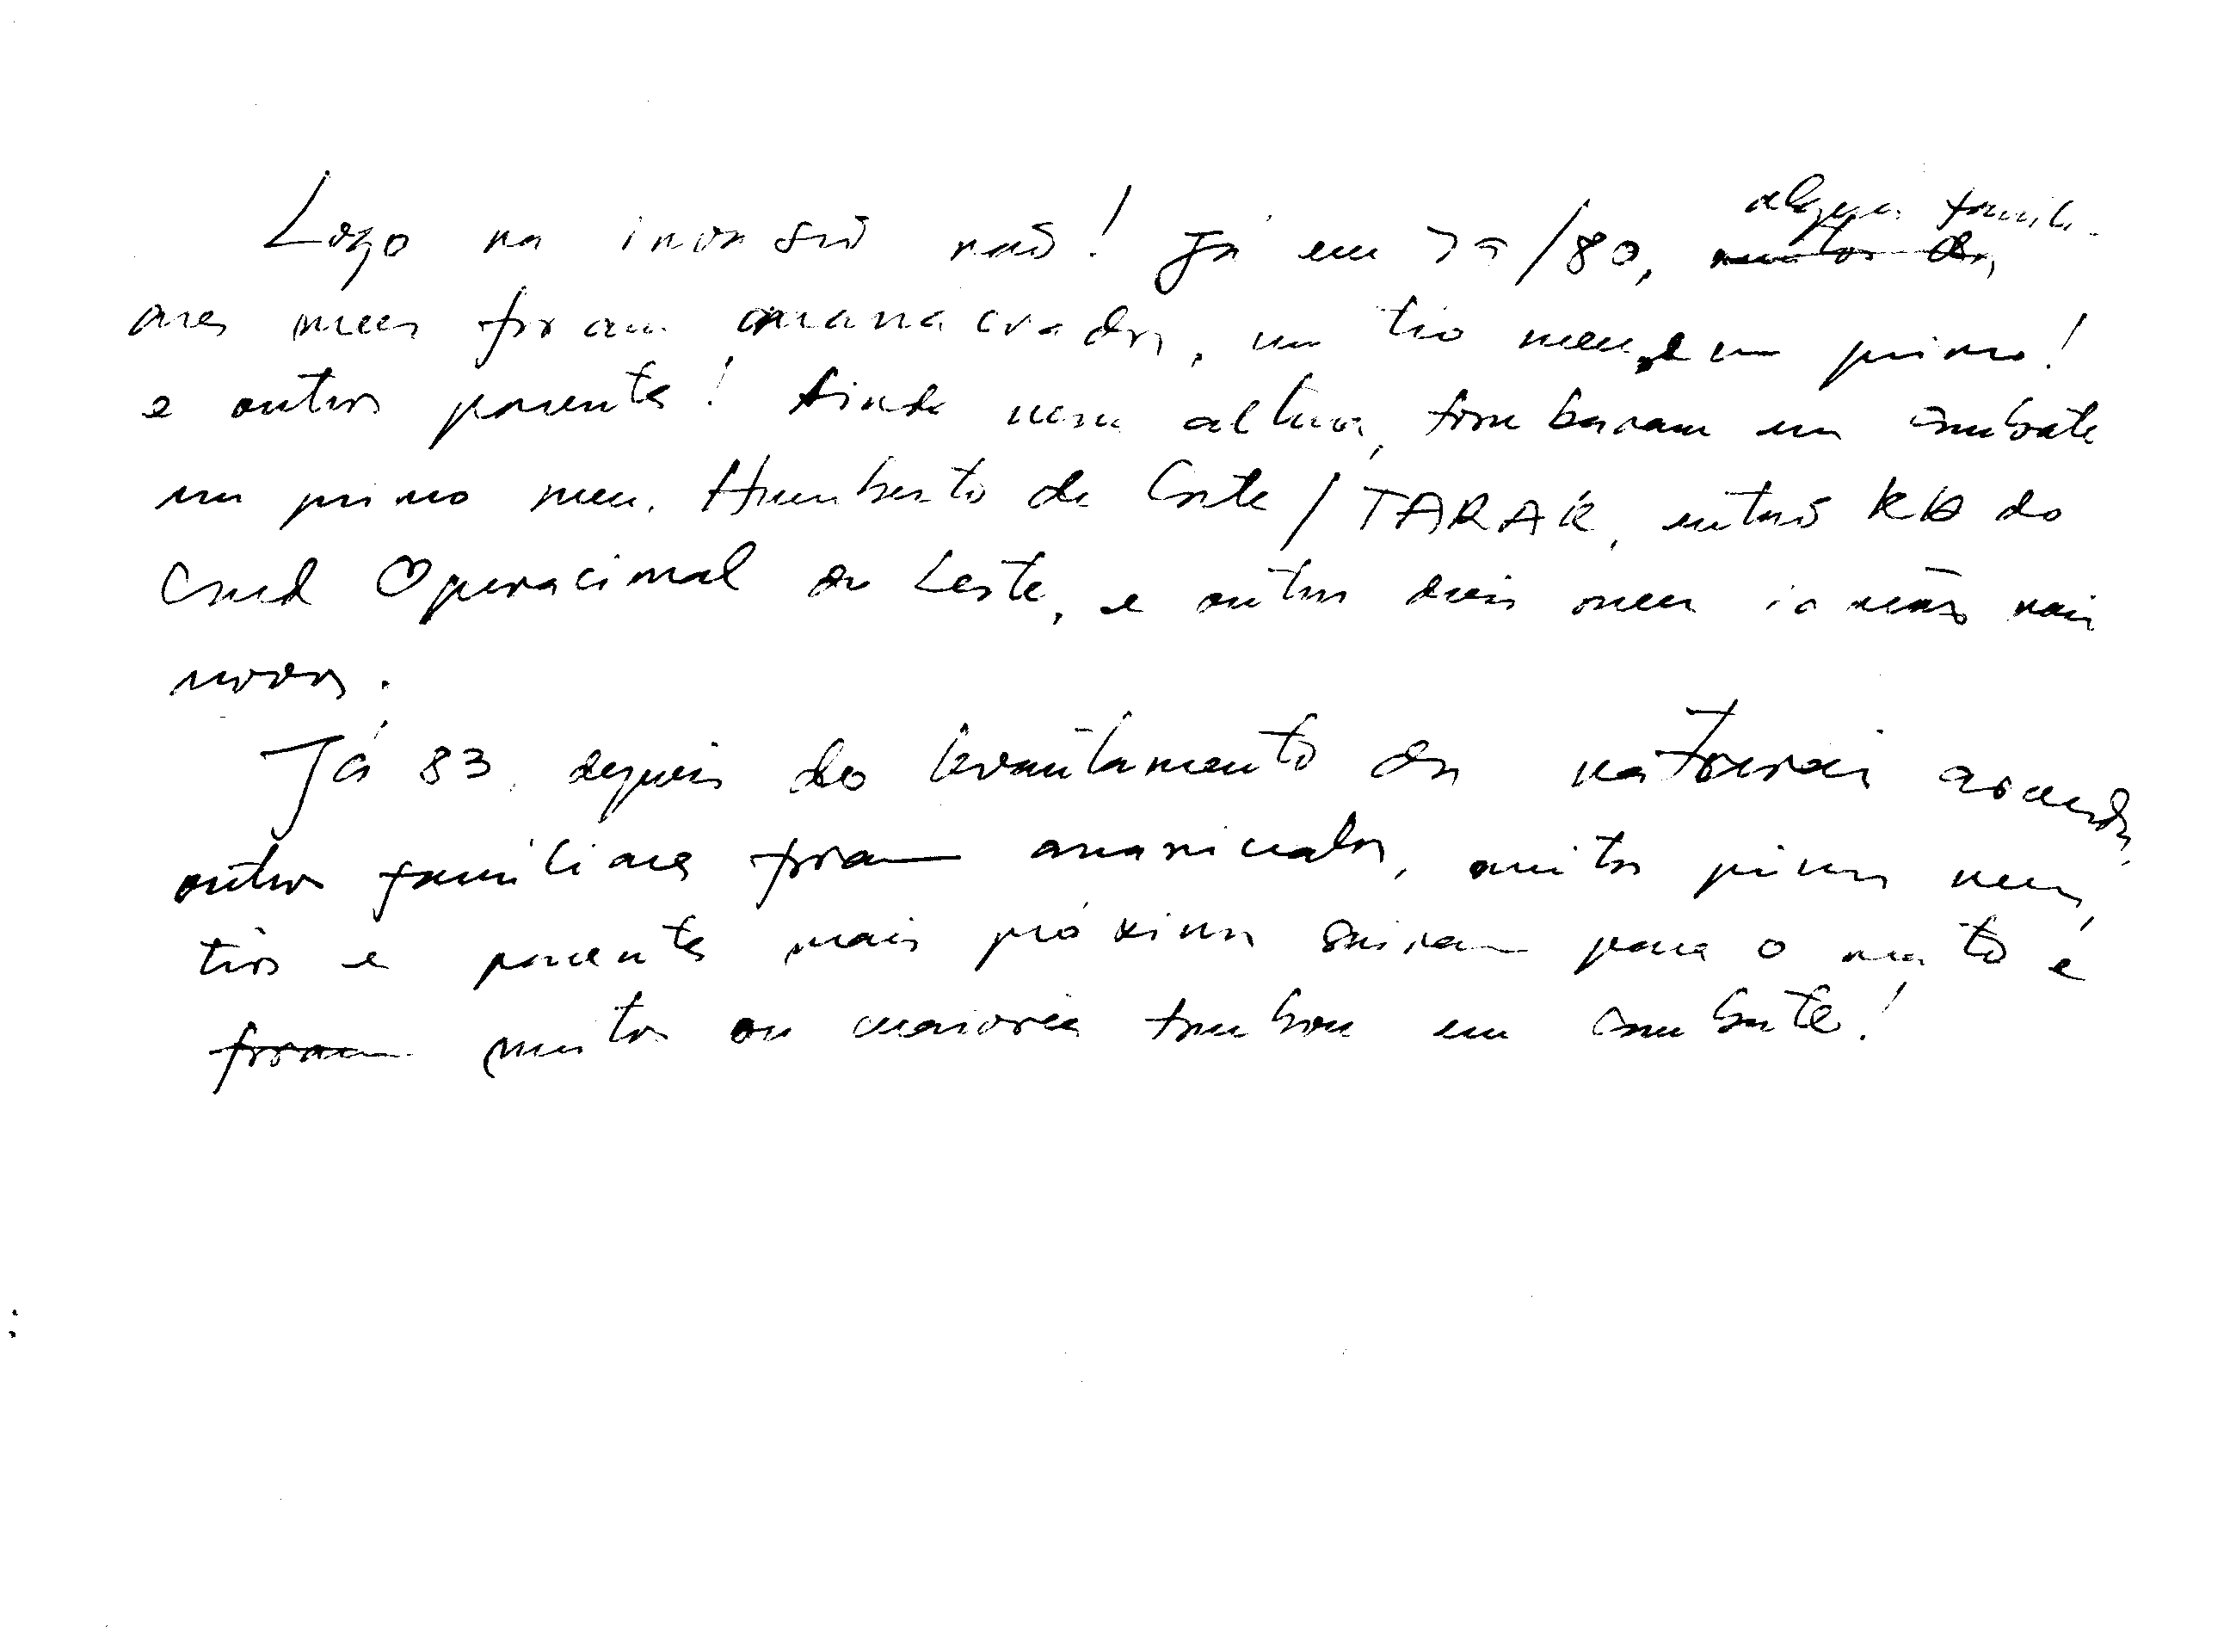 Logo na invasão não! Já em 79/80, alguns famili-
ares meus foram massacrados, um tio meu, e um primo!
e outros parentes! Ainda nessa altura, tombaram em combate
um primo meu. Humberto da Costa / TARAK, então RA do
Cmd Operacional do Leste, e outros dois meus irmãos mais
novos.
Já 83, depois do levantamento das,
outros familiares foram assassinados, muitos primos meus,
tios e parentes mais próximos saíram para o mato e
foram muitos ou maioria tombou em combate!